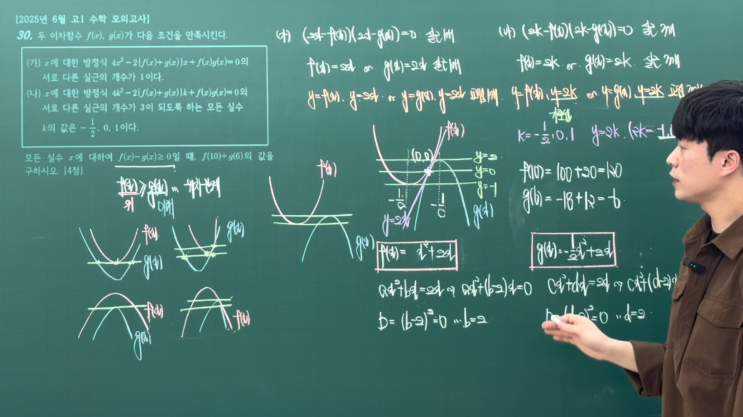 [2025년 6월 고1 수학 모의고사]
30. 두 이차함수 f(x), g(x)가 다음 조건을 만족시킨다.
(가) x에 대한 방정식 4x²-2{f(x)+g(x)}x+f(x)g(x)=0의
서로 다른 실근의 개수가 1이다.
(나) x에 대한 방정식 4k²-2{f(x)+g(x)}k+f(x)g(x)=0의
서로 다른 실근의 개수가 3이 되도록 하는 모든 실수
k의 값은 -1/2, 0, 1이다.
모든 실수 x에 대하여 f(x)-g(x)≥0일 때, f(10)+g(6)의 값을
구하시오. [4점]
f(x) ≥ g(x)
f(x)
g(x)
g(x)
f(x)
f(x)
g(x)
f(x)
f(x)
g(x)
(가) (2x-f(x))(2x-g(x))=0
f(x)=2x or g(x)=2x
y=f(x), y=2x or y=g(x), y=2x
f(x)
(0,0)
y=2
y=0
y=-1
-1/2
y=2x
g(x)
f(x)=x²+2x
ax²+bx=2x ax²+(b-2)x=0
D=(b-2)²=0 ∴b=2
(나) (2k-f(x))(2k-g(x))=0
f(x)=2k or g(x)=2k
y=f(x), y=2k or y=g(x), y=2k
k=-1/2, 0, 1
f(10)=100+20=120
g(6)=-18+12=-6
g(x)=-1/2x²+2x
cx²+dx=2x
=0 ∴d=2